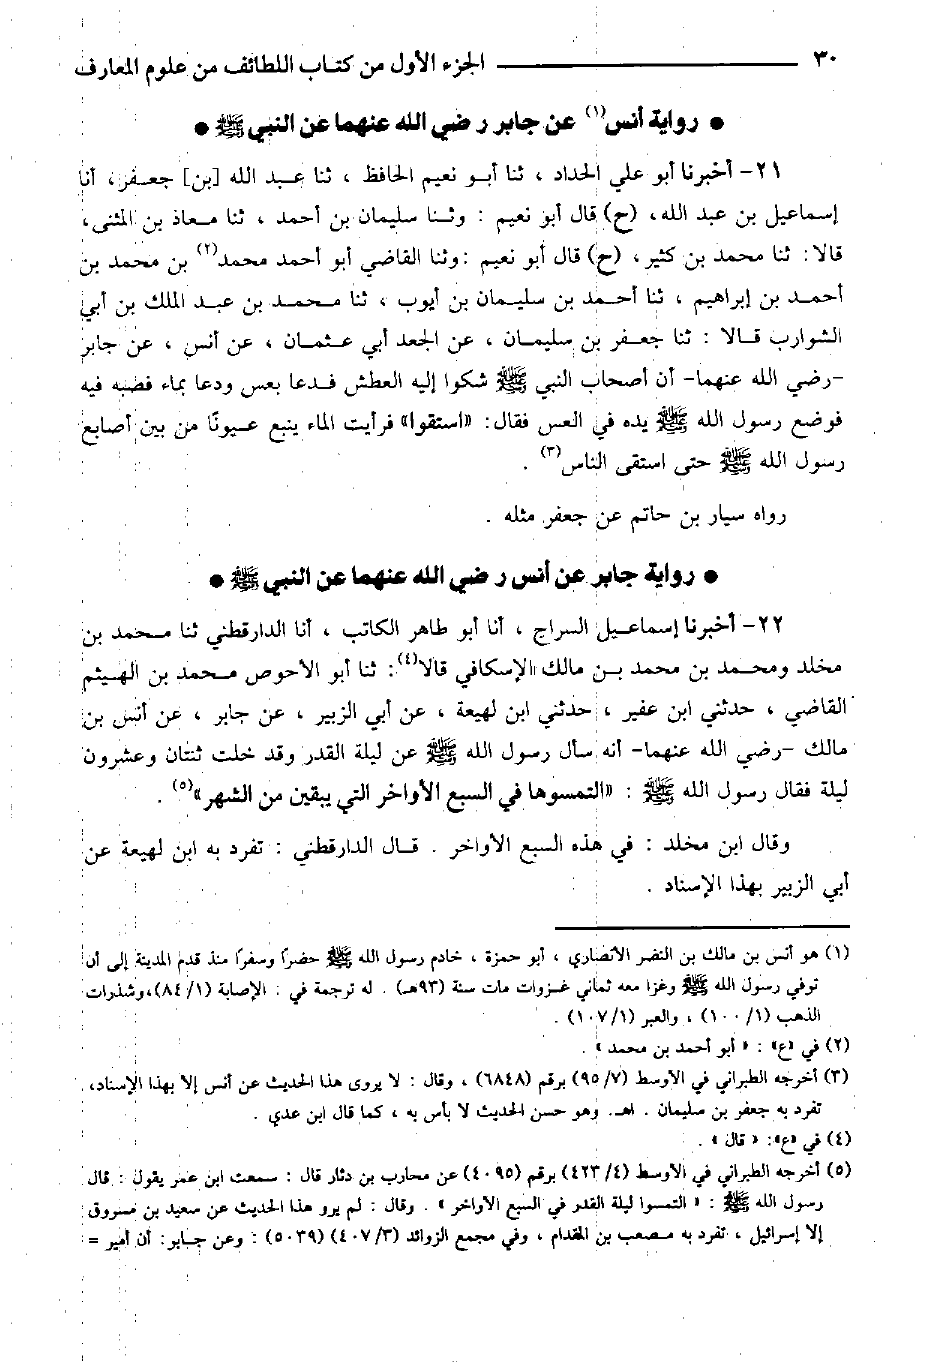 ٣٠ الجزء الأول من كتاب اللطائف من علوم المعارف
● رواية أنس(١) عن جابر رضي الله عنهما عن النبي ﷺ ●
٢١- أخبرنا أبو علي الحداد ، ثنا أبو نعيم الحافظ ، ثنا عبد الله [بن] جعفر، أنا
إسماعيل بن عبد الله، (ح) قال أبو نعيم : وثنا سليمان بن أحمد ، ثنا معاذ بن المثنى،
قالا: ثنا محمد بن كثير، (ح) قال أبو نعيم :وثنا القاضي أبو أحمد محمد(٢) بن محمد بن
أحمد بن إبراهيم ، ثنا أحمد بن سليمان بن أيوب ، ثنا محمد بن عبد الملك بن أبي
الشوارب قالا : ثنا جعفر بن سليمان ، عن الجعد أبي عثمان ، عن أنس ، عن جابر
-رضي الله عنهما- أن أصحاب النبي ﷺ شكوا إليه العطش فدعا بعس ودعا بماء فصبه فيه
فوضع رسول الله ﷺ يده في العس فقال: «استقوا» فرأيت الماء ينبع عيونًا من بين أصابع
رسول الله ﷺ حتى استقى الناس(٣) .
رواه سيار بن حاتم عن جعفر مثله .
● رواية جابر عن أنس رضي الله عنهما عن النبي ﷺ ●
٢٢- أخبرنا إسماعيل السراج ، أنا أبو طاهر الكاتب ، أنا الدارقطني ثنا محمد بن
مخلد ومحمد بن محمد بن مالك الإسكافي قالا(٤): ثنا أبو الأحوص محمد بن الهيثم
القاضي ، حدثني ابن عفير ، حدثني ابن لهيعة ، عن أبي الزبير ، عن جابر ، عن أنس بن
مالك -رضي الله عنهما- أنه سأل رسول الله ﷺ عن ليلة القدر وقد خلت ثنتان وعشرون
ليلة فقال رسول الله ﷺ : «التمسوها في السبع الأواخر التي يبقين من الشهر»(٥) .
وقال ابن مخلد : في هذه السبع الأواخر . قال الدارقطني : تفرد به ابن لهيعة عن
أبي الزبير بهذا الإسناد .
(١) هو أنس بن مالك بن النضر الأنصاري ، أبو حمزة ، خادم رسول الله ﷺ حضرًا وسفرًا منذ قدم المدينة إلى أن
توفي رسول الله ﷺ وغزا معه ثماني غزوات مات سنة (٩٣هـ) . له ترجمة في : الإصابة (٨٤/١)،وشذرات
الذهب (١٠٠/١) ، والعبر (١٠٧/١) .
(٢) في «ع» : « أبو أحمد بن محمد » .
(٣) أخرجه الطبراني في الأوسط (٩٥/٧) برقم (٦٨٤٨) ، وقال : لا يروى هذا الحديث عن أنس إلا بهذا الإسناد،
تفرد به جعفر بن سليمان . اهـ. وهو حسن الحديث لا بأس به ، كما قال ابن عدي .
(٤) في «ع»: « قال » .
(٥) أخرجه الطبراني في الأوسط (٤٢٣/٤) برقم (٤٠٩٥) عن محارب بن دثار قال : سمعت ابن عمر يقول : قال
رسول الله ﷺ : « التمسوا ليلة القدر في السبع الأواخر » . وقال : لم يرو هذا الحديث عن سعيد بن مسروق
إلا إسرائيل ، تفرد به مصعب بن المقدام ، وفي مجمع الزوائد (٤٠٧/٣) (٥٠٣٩) : وعن جابر: أن أمير =